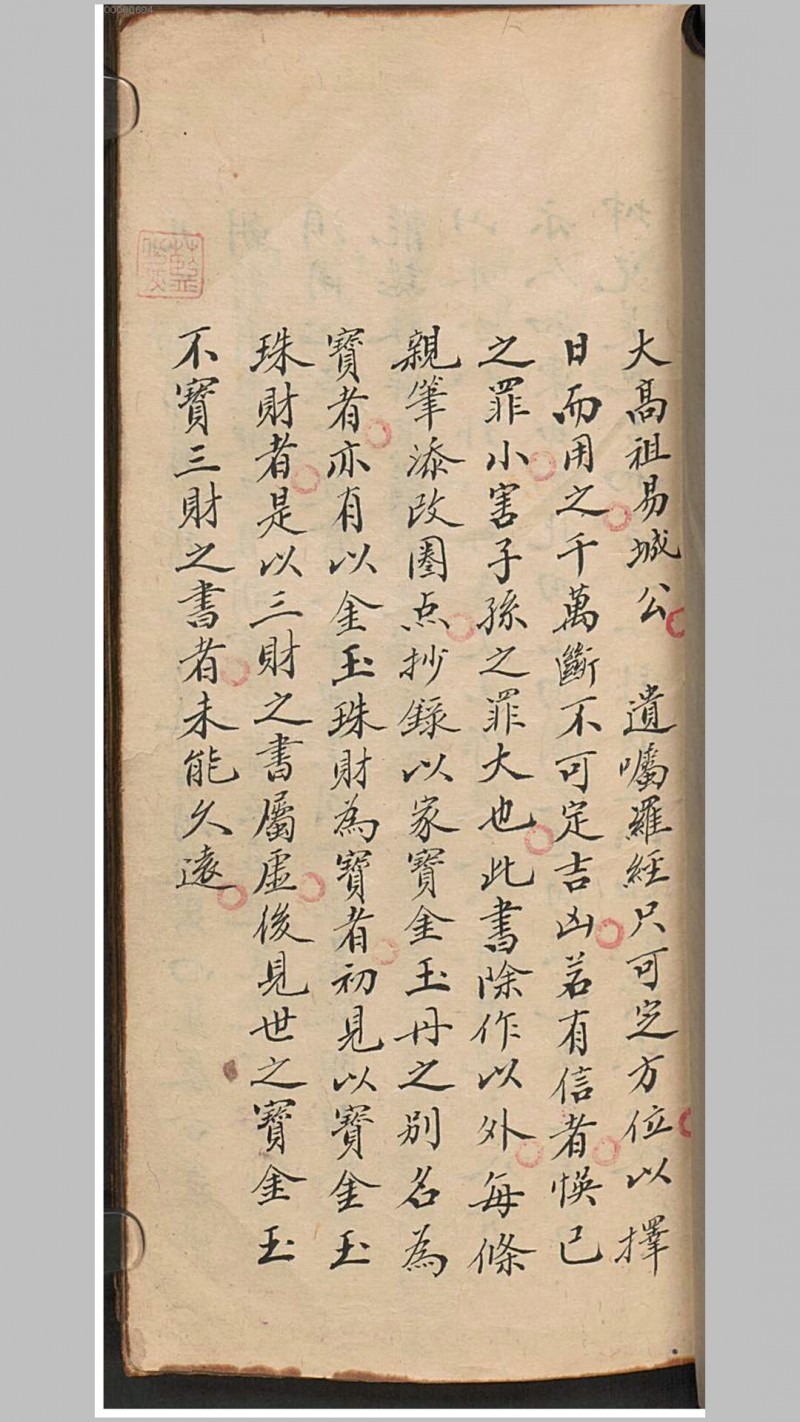 大高祖易城公 遺囑羅經只可定方位以擇
日而用之千萬斷不可定吉凶若有信者悞已
之罪小害子孫之罪大也此書除作以外每條
親筆添改圈点抄録以家寶金玉丹之别名為
寶者亦有以金玉珠財為寶者初見以寶金玉
珠財者是以三財之書屬虛後見世之寶金玉
不寶三財之書者未能久遠
00060694